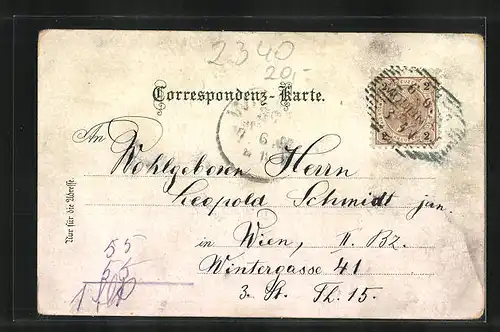 2340
20,-
Correspondenz-Karte.
2 2
2 2
An
Wohlgeboren Herrn
Leopold Schmidt jun.
in Wien, II. Bz.
Wintergasse 41
3. St. Th. 15.
Nur für die Adresse.
55
55